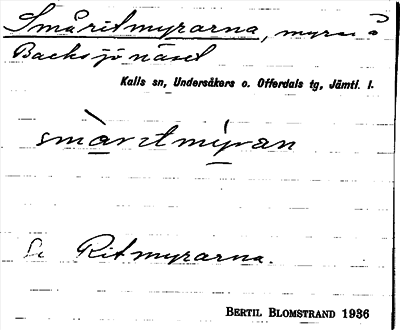 Småritmyrarna, myrar å
Backsjönäset
Kalls sn, Undersåkers o. Offerdals tg, Jämtl. l.
smàrɩtmýran
Se Ritmyrarna.
BERTIL BLOMSTRAND 1936